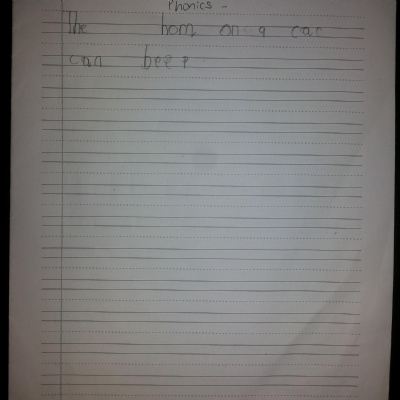 Phonics -
The horn on a car
can beep